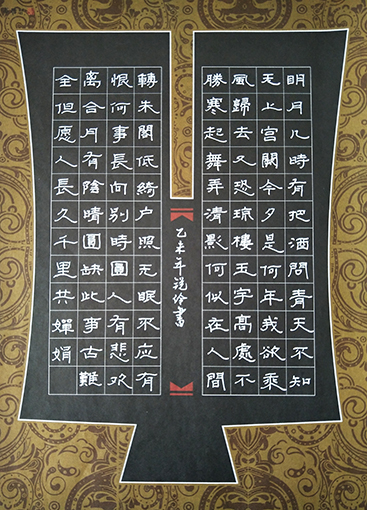 明月几時有把酒問青天不知
天上宮闕今夕是何年我欲乘
風歸去又恐琼樓玉宇高處不
勝寒起舞弄清影何似在人間
轉朱閣低綺户照无眠不應有
恨何事長向别時圓人有悲欢
离合月有陰晴圓缺此事古難
全但愿人長久千里共嬋娟
乙未年書